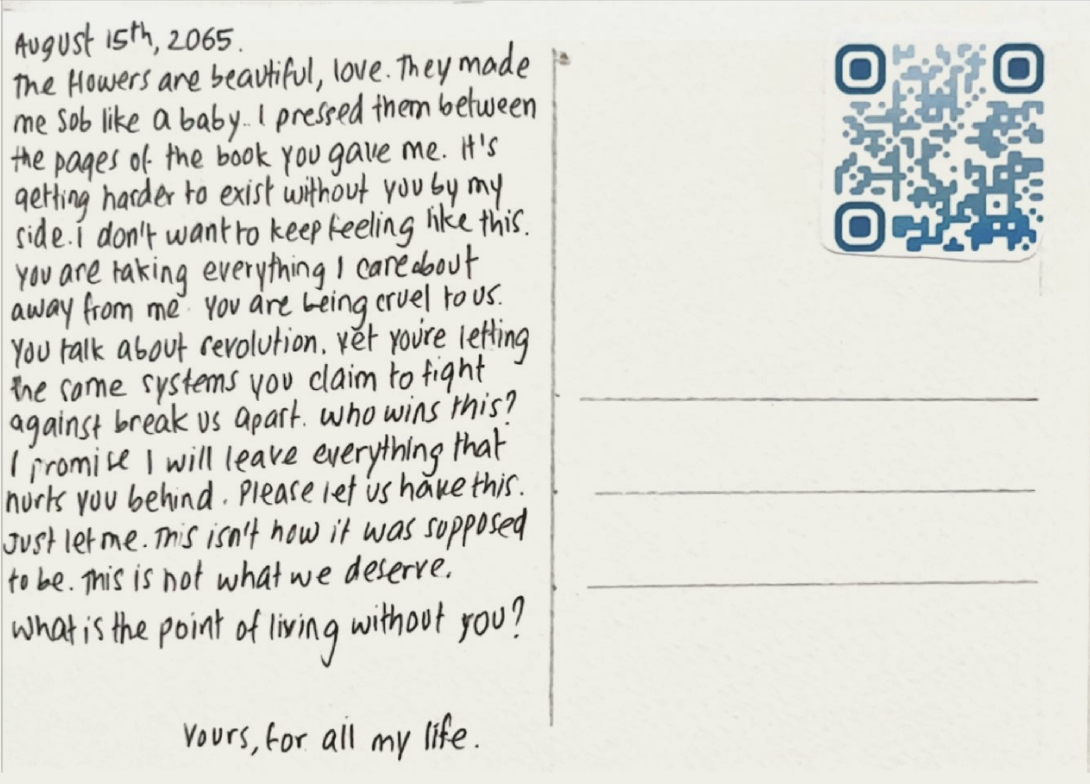 August 15th, 2065.
The flowers are beautiful, love. They made
me sob like a baby.. I pressed them between
the pages of the book you gave me. It's
getting harder to exist without you by my
side. i don't want to keep feeling like this.
You are taking everything I care about
away from me. You are being cruel to us.
You talk about revolution. yet you're letting
the same systems you claim to fight
against break us apart. Who wins this?
I promise I will leave everything that
hurts you behind. Please let us have this.
Just let me. This isn't how it was supposed
to be. This is not what we deserve.
What is the point of living without you?
Yours, for all my life.